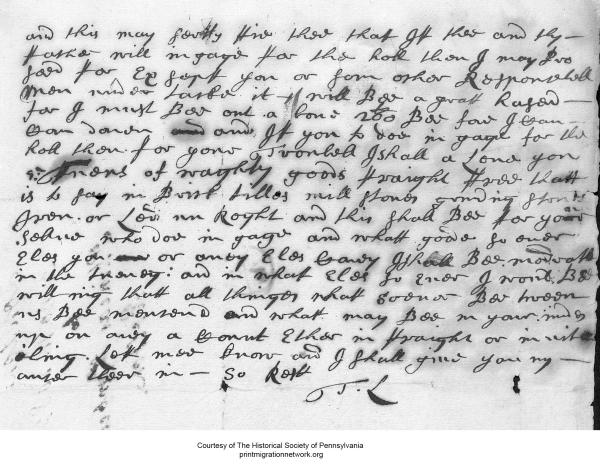 and this may sertify thee that If thee and thy
father will ingage for the holl then I may Pro
seed for Exsept you or som other Responsebell
men under take it it will Bee a great hased
for I must Bee out a bove 260 Bee fore I Can
Com doner and If you doe in gage for the
holl then for your Trowbell I shall a Lowe you
5 Tuens of waighty goods fraight free that
is to say in Brick tilles mill stones grinding stones
Iren or Led un Roght and this shall Bee for your
Selive who doe in gage and what goods so ever
Eles you or aney Eles Carey I shall Bee moderatt
in the and in what Eles so Ever I would Bee
willing that all thinges what soever Bee tween
us Bee mensend and what may Bee in your mind
up on aney a Count Ether in fraight or in vit
eling Lett mee know and I shall give you my
anser heer in — So Rest
T. L
Courtesy of The Historical Society of Pennsylvania
printmigrationnetwork.org